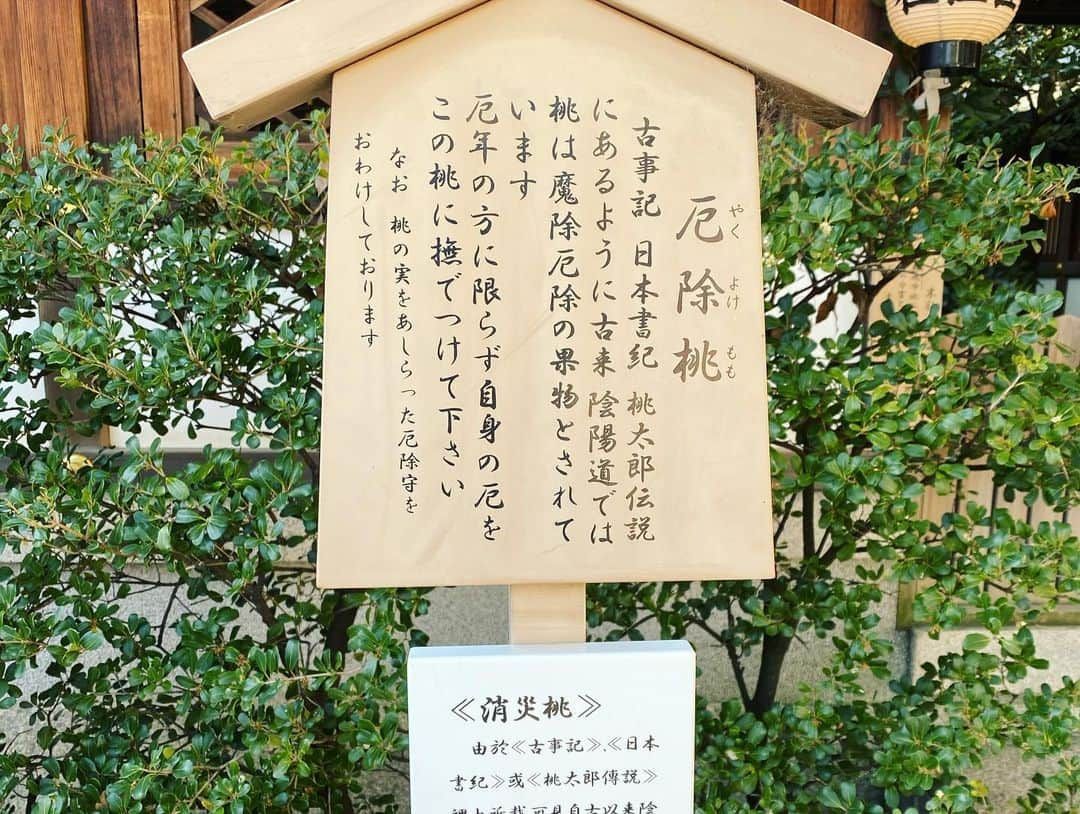 厄除桃
やくよけもも
古事記 日本書紀 桃太郎伝説
にあるように古来 陰陽道では
桃は魔除厄除の果物とされて
います
厄年の方に限らず自身の厄を
この桃に撫でつけて下さい
なお 桃の実をあしらった厄除守を
おわけしております
≪消災桃≫
由於≪古事記≫、≪日本
書紀≫或≪桃太郎傳說≫
可見自古以來陰